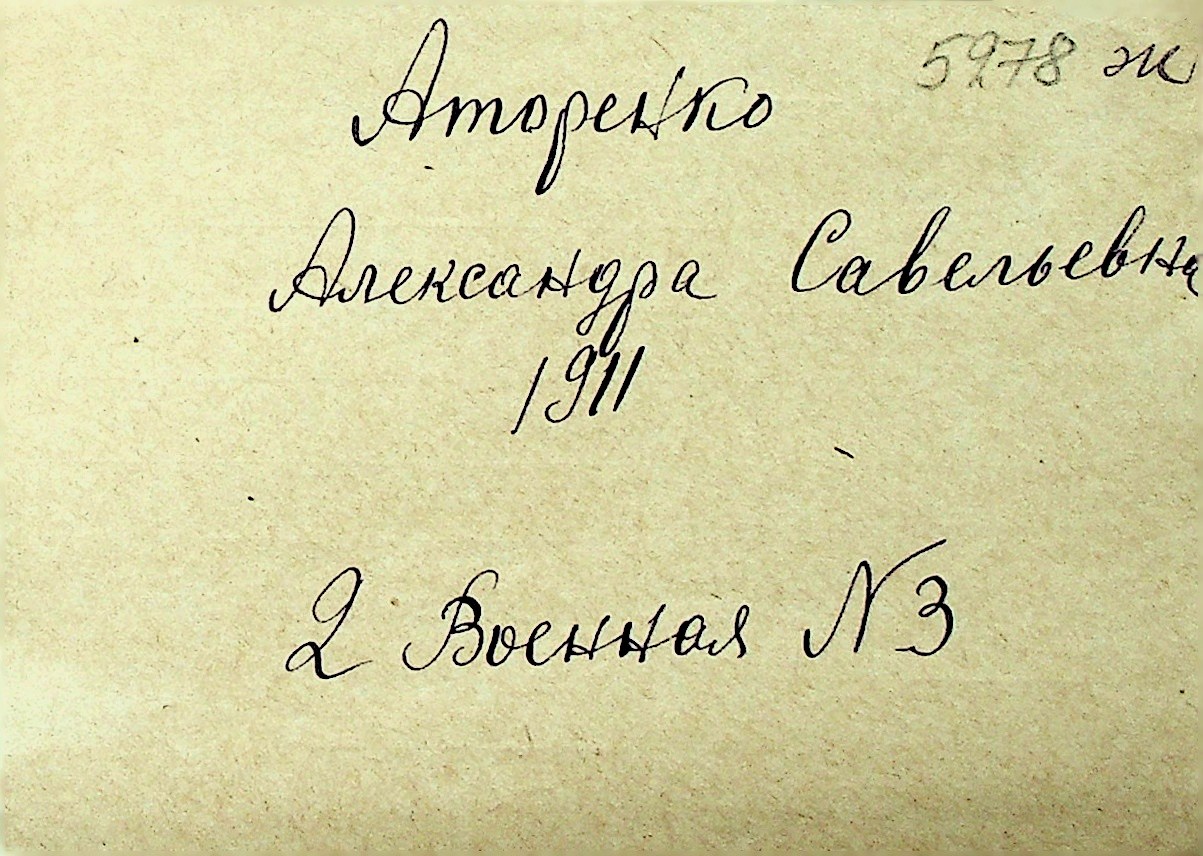 5978 ж
Аторенко
Александра Савельевна
1911
2 Военная N 3